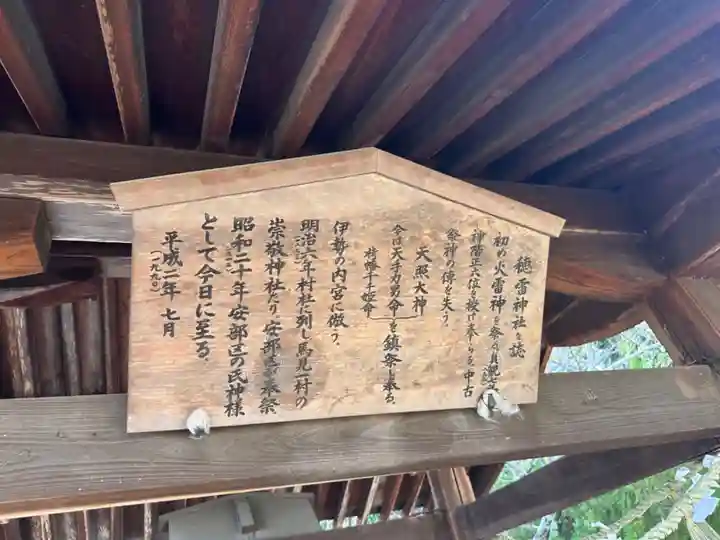 穂雷神社を読
初め火雷神を祭り貞観
神階正六位を授け奉りる、中古
祭神の傳を失う。
天照大神
今は天手力男命を鎮祭し奉る。
栲幡千々姫命
伊勢の内宮に倣う。
明治六年村社に列し馬見一村の
崇敬神社たり、安部
昭和二十年安部区の氏神様
として今日に至る。
平成二年 七月
(一九九〇)